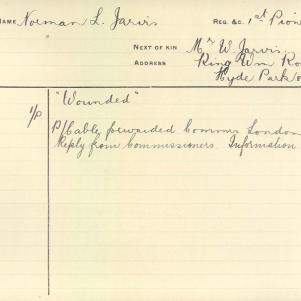 NAME Norman L. Jarvis REG. &C. 1st Pion
NEXT OF KIN Mr W. Jarvis.
ADDRESS King Wm Ro
Hyde Park
"Wounded"
P/Cable forwarded Comms London
Reply from Commissioners. Information